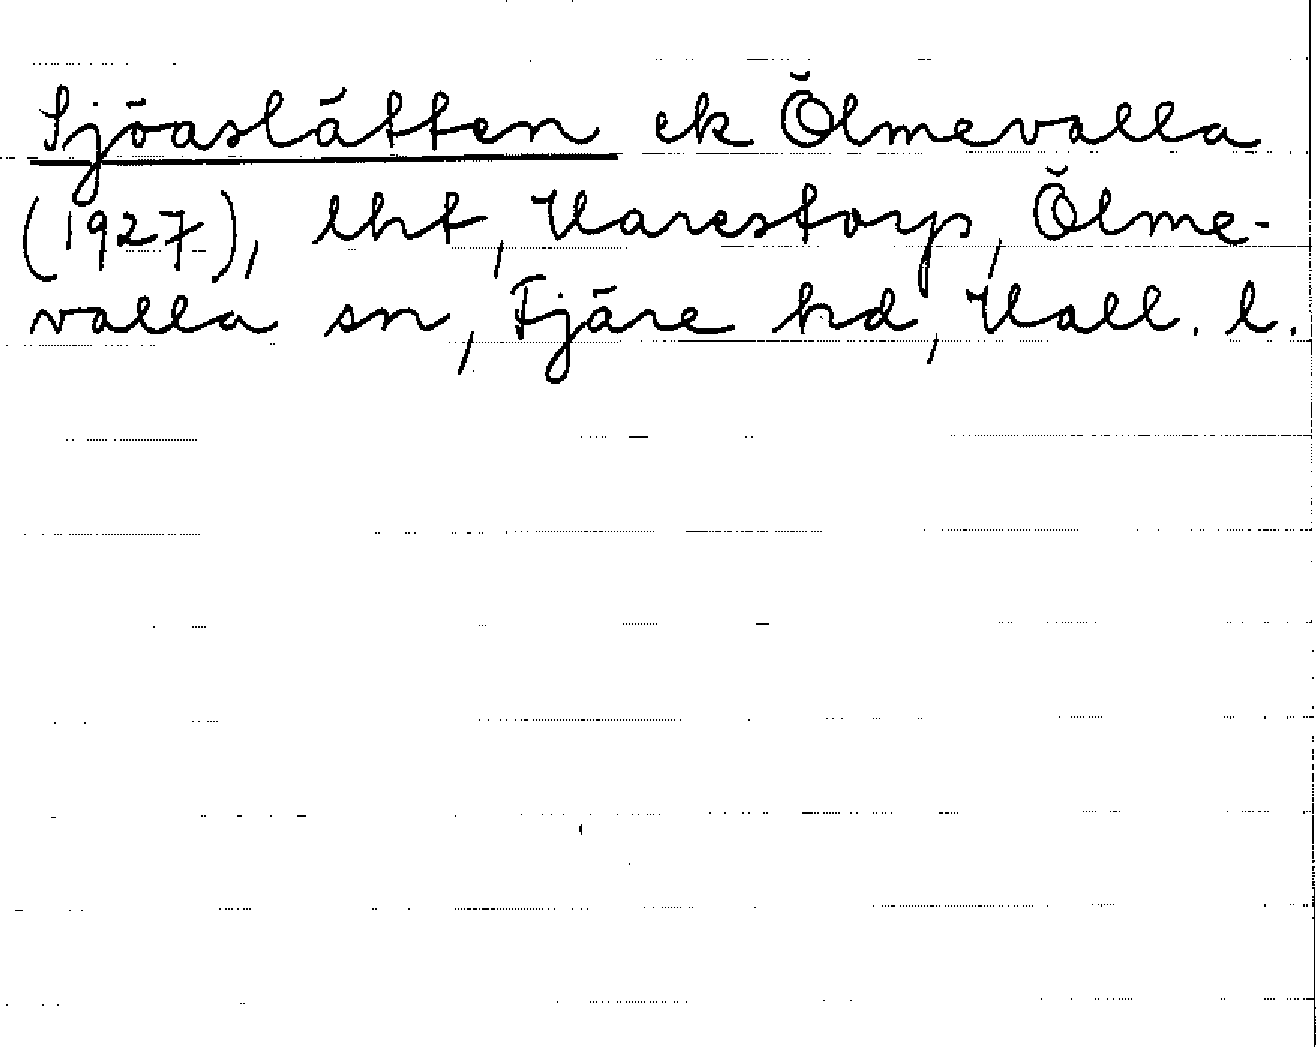 Sjöaslätten ek Ölmevalla
(1927), lht, Varestorp, Ölme-
valla sn, Fjäre hd, Hall. l.